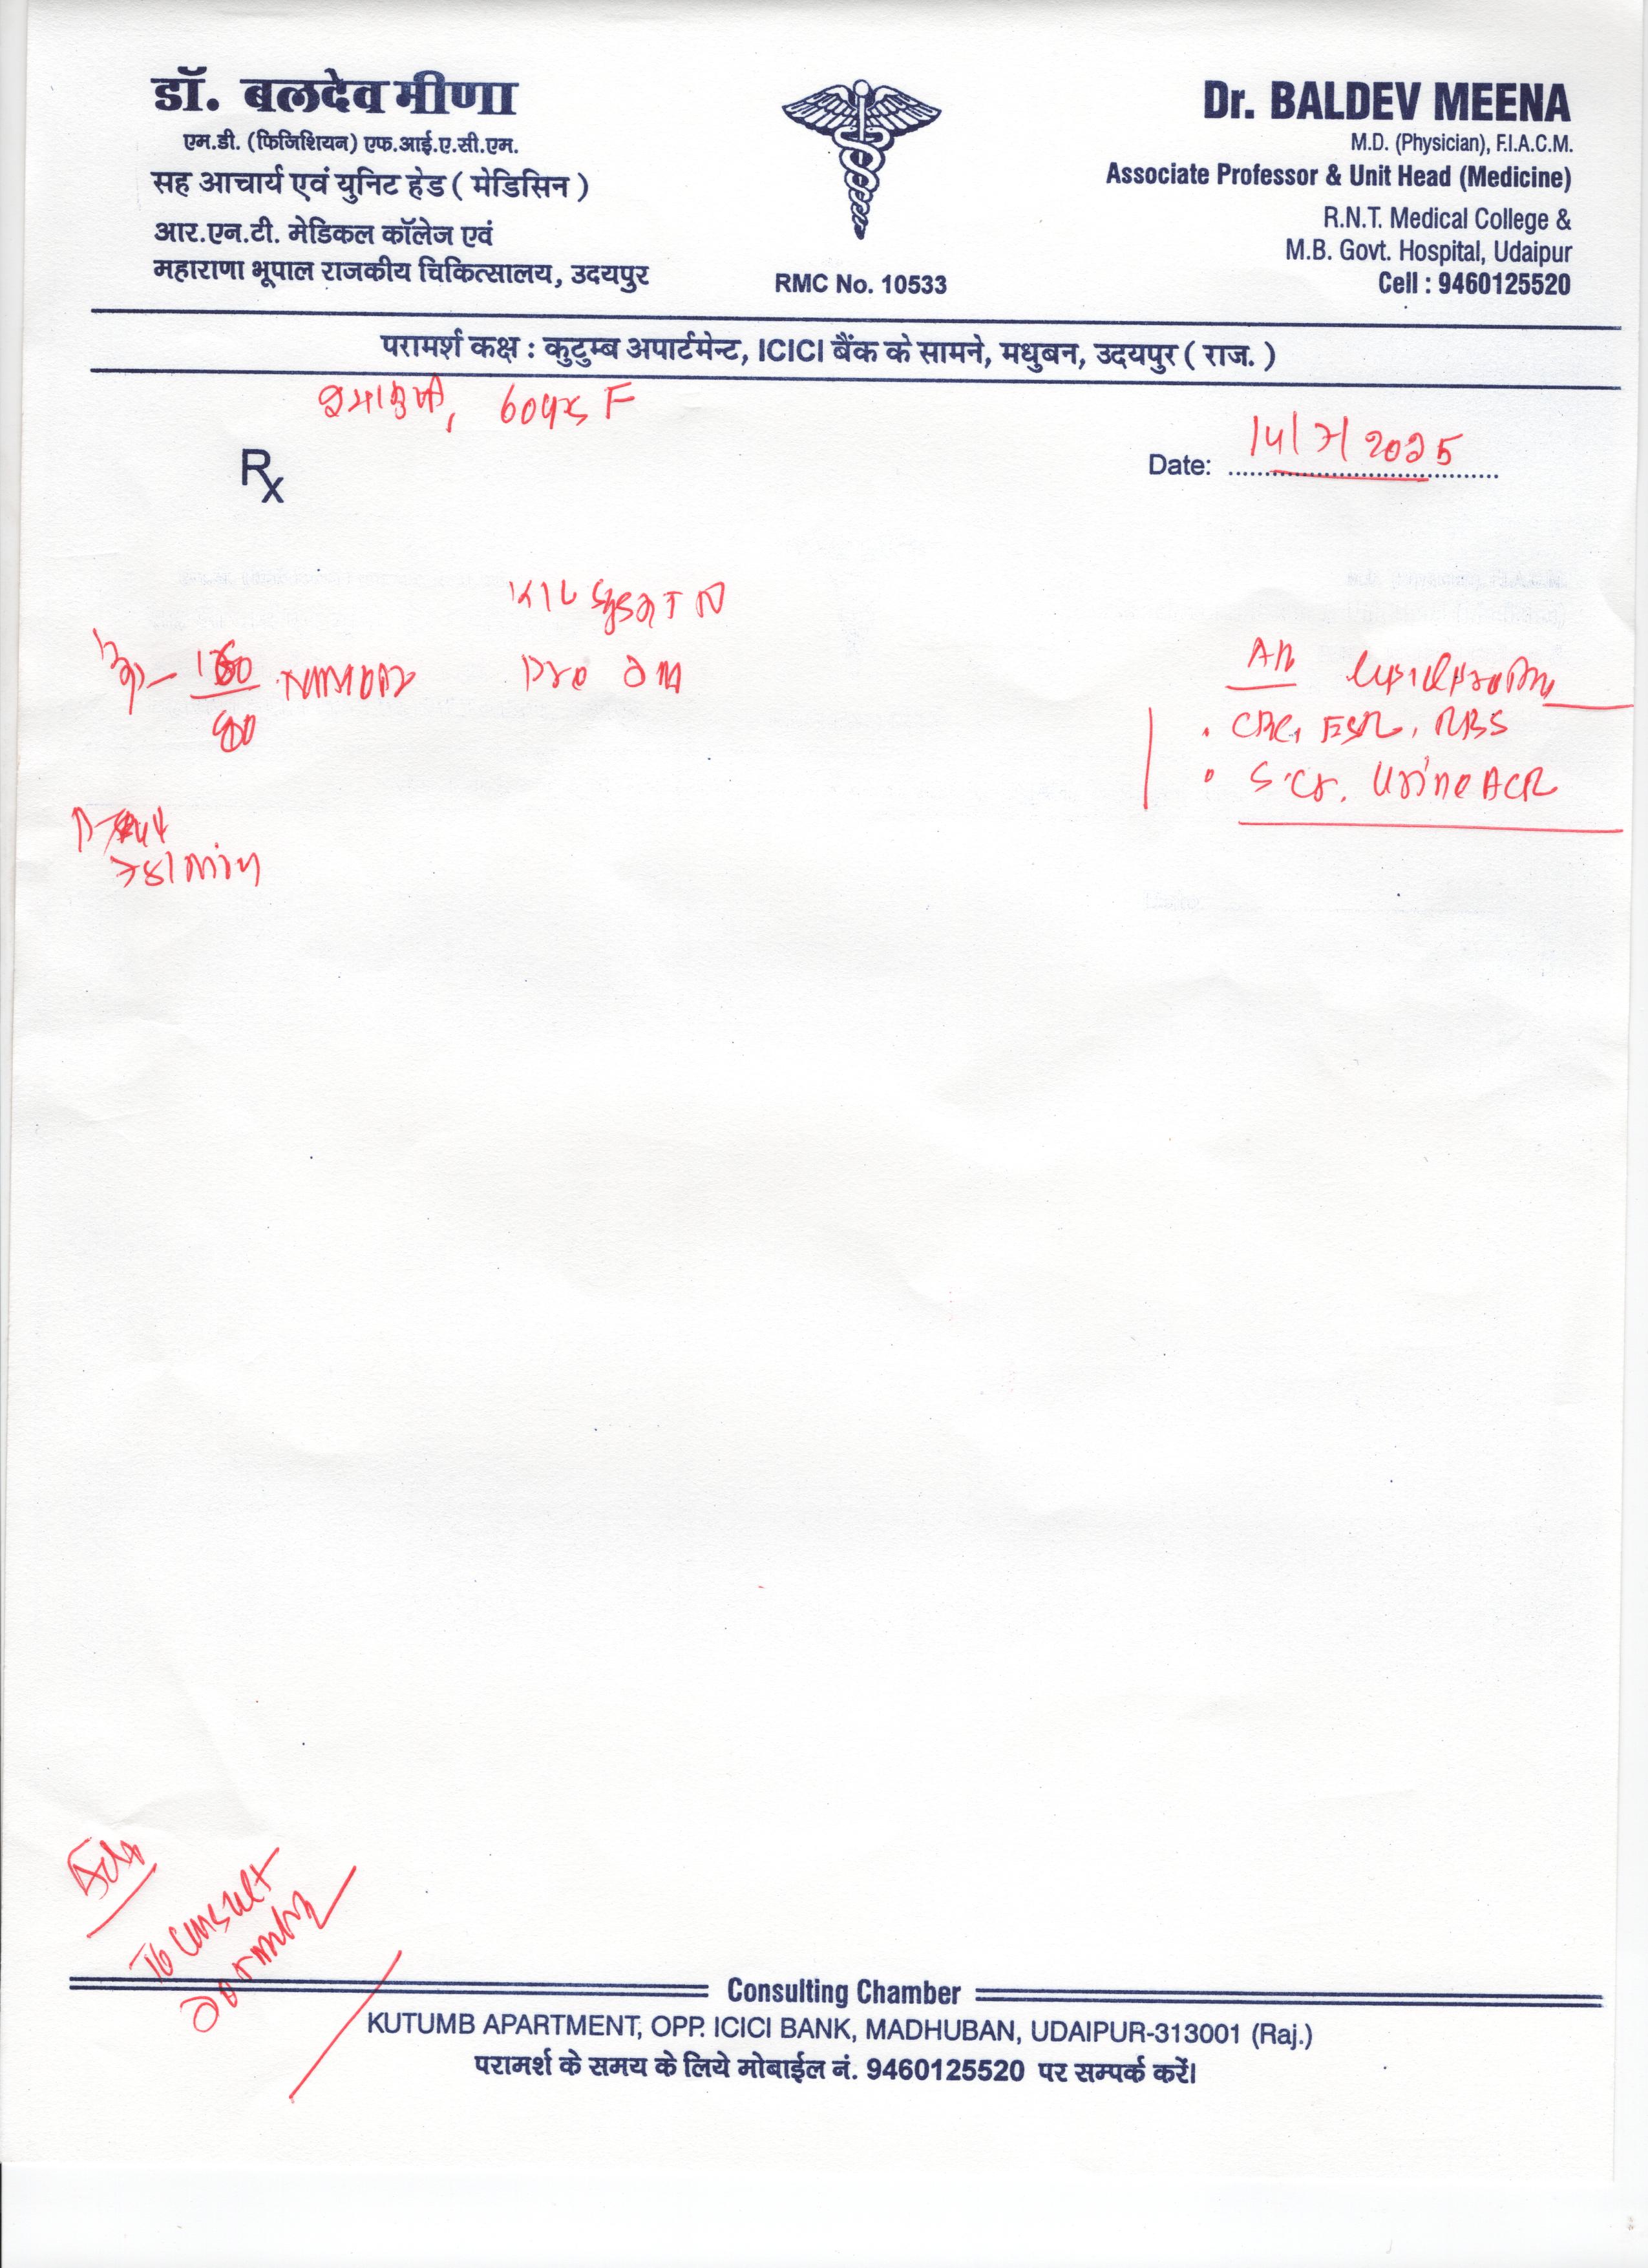 डॉ. बलदेव मीणा
एम.डी. (फिजिशियन) एफ.आई.ए.सी.एम.
सह आचार्य एवं युनिट हेड ( मेडिसिन )
आर.एन.टी. मेडिकल कॉलेज एवं
महाराणा भूपाल राजकीय चिकित्सालय, उदयपुर
RMC No. 10533
Dr. BALDEV MEENA
M.D. (Physician), F.I.A.C.M.
Associate Professor & Unit Head (Medicine)
R.N.T. Medical College &
M.B. Govt. Hospital, Udaipur
Cell : 9460125520
परामर्श कक्ष : कुटुम्ब अपार्टमेन्ट, ICICI बैंक के सामने, मधुबन, उदयपुर ( राज. )
60yrs F
Rx
Date: 14/7/2025
Pre DM
Lipid profile
CBC, ESR, RBS
S.Cr. Urine ACR
To consult
Consulting Chamber
KUTUMB APARTMENT, OPP. ICICI BANK, MADHUBAN, UDAIPUR-313001 (Raj.)
परामर्श के समय के लिये मोबाईल नं. 9460125520 पर सम्पर्क करें।